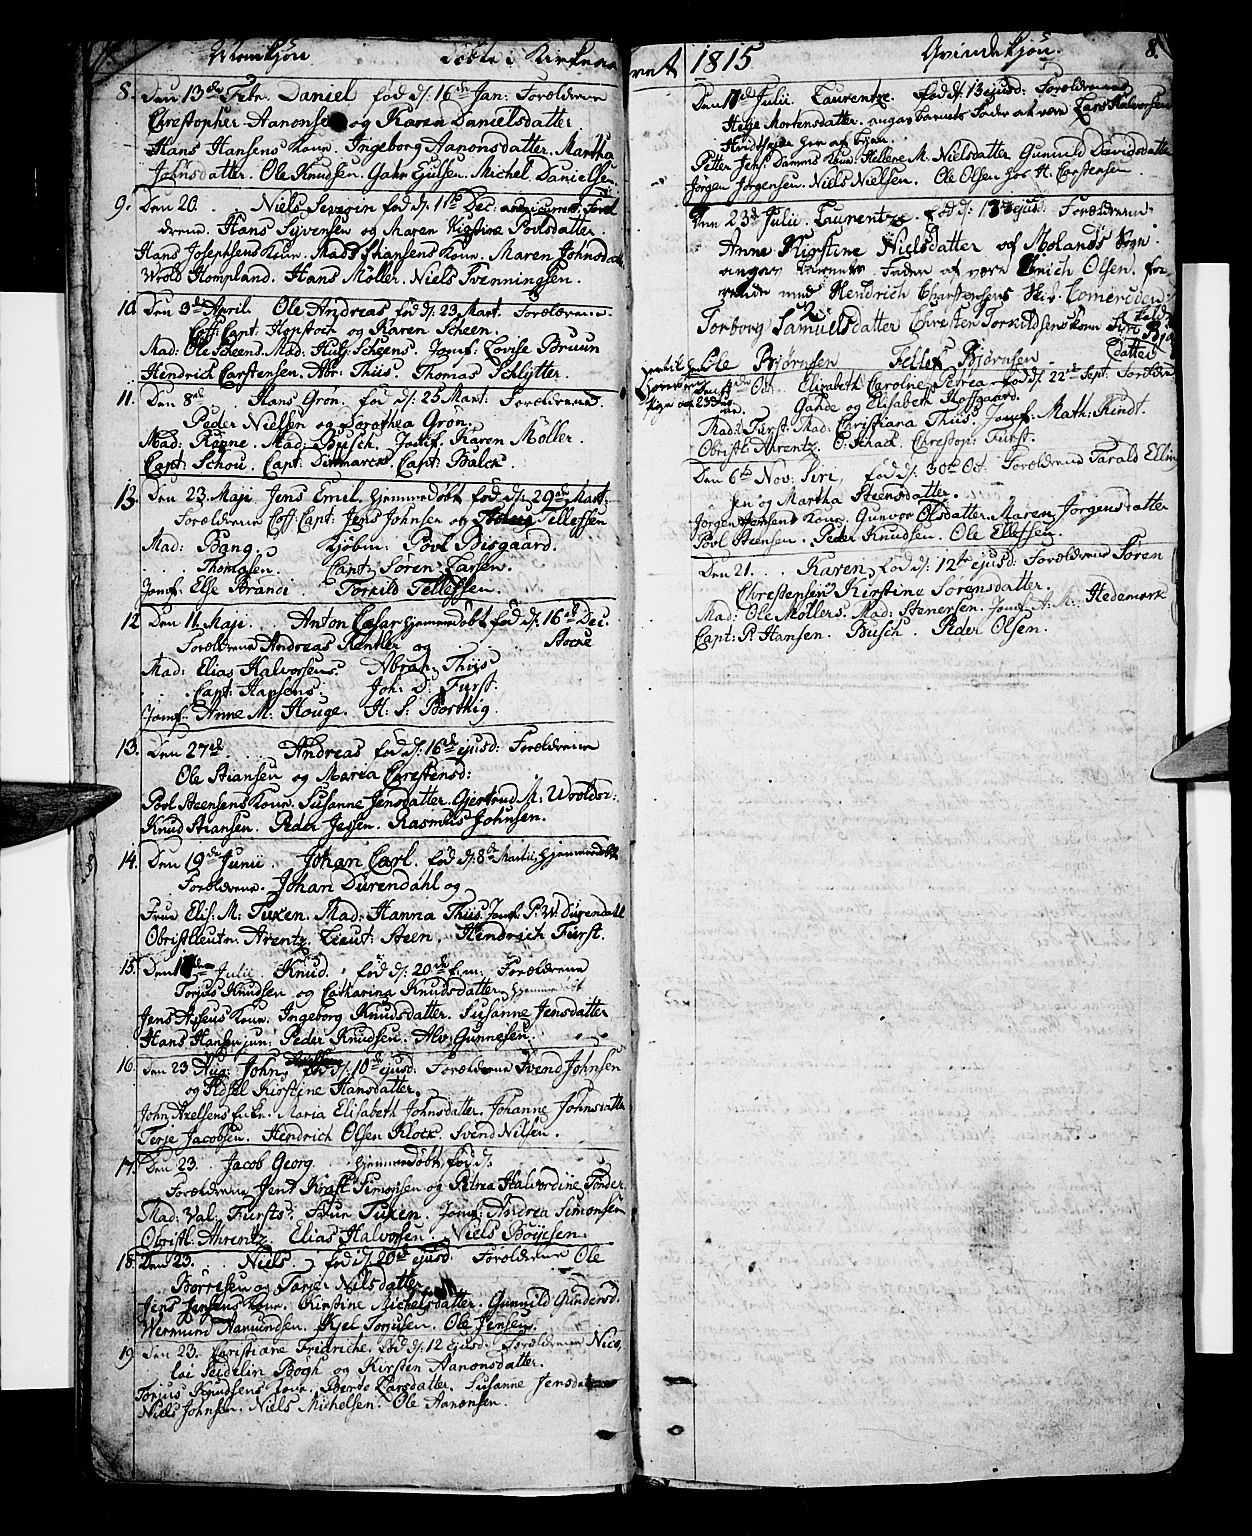 Mandkjön Födte i Kirken
8. Den 13de Febr. Daniel föd d: 16de Jan: Forældrene
Christopher Aanonsen og Karen Danielsdatter
Hans Hansens Kone. Ingeborg Aanonsdatter. Martha
Johnsdatter. Ole Knudsen. Gahr Ejulsen. Michel Danielsen
9. Den 20. Niels Severin föd d: 11te Dec. Foræl
drene. Hans Syversen og Maren Kirstine Povlsdatter.
Hans Josephsens Kone. Mads Stiansens Kone. Maren Johnsdatt
Wrold Hompland. Hans Möller. Niels Svenningsen.
10. Den 3de April. Ole Andreas föd d: 23 Mart. Forældrene
Coff: Capt. Hopstock og Karen Scheen.
Mad: Ole Scheens. Mad: Hulj: Scheens. Jomf: Lovise Bruun
Hendrich Carstensen. Abr: Thiis. Thomas Schlytter.
11. Den 8de Hans Grön. föd d: 25 Mart: Forældrene.
Peder Nielsen og Dorothea Grön.
Mad: Ranne. Mad: Busch. Jomf: Karen Möller.
Capt: Schou. Capt: Dittmarck. Capt: Balck.
13. Den 23 Maji Jens Emil. hjemmedöbt föd d: 29de Mart:
Forældrene Coff: Capt: Jens Johnsen og Tellefsen
Mad: Bang. Kjöbm: Povl Bisgaard.
Thomasen. Capt: Sören Larsen.
Jomf: Else Brandi. Torkild Tellefsen.
12 Den 14 Maji. Anton Cæsar hjemmedöbt föd d: 16de Dec.
Forældrene Andreas Kentler og Stocke
Mad: Elias Halvorsens. Abrah: Thiis
Capt: Hansens. Joh: D: Furst.
Jomf: Anne M: Houge. H: S: Borthig.
13. Den 27de. Andreas föd d: 16de ejusd: Forældrene
Ole Stiansen og Maria Chrestensd:
Povl Steensens Kone. Susanne Jensdatter. Gjertrud M: Wroldsd:
Knud Stiansen. Peder Jessen. Rasmus Johnsen.
14. Den 19de Junii. Johan Carl. föd d: 8de Martii, hjemmedöbt
Forældrene. Johan Dürendahl og
Frue Elis: M: Tuxen. Mad: Hanna Thiis. Jomf: P: W: Dürendahl
Obristlieutn. Arentz. Lieut: Steen. Hendrich Furst.
15. Den Julii. Knud. föd d: 20de f.m: Forældrene
Torjus Knudsen og Catharina Knudsdatter, hjemmedöbt
Jens Kone: Ingeborg Knudsdatter. Susanne Jensdatter
Hans Hansen jun: Peder Knudsen. Alv Gunnesen.
16. Den 23 Aug: John, föd d: 10de ejusd: Forældrene Svend Johnsen
og Kirstine Hansdatter.
John Axelsens Enke. Maria Elisabeth Johnsdatter. Johanne Johnsdatter
Terje Jacobsen. Hendrich Olsen Klock. Svend Nilsen.
17. Den 23. Jacob Georg hjemmedöbt, föd d:
Forældrene Jent Kraft Simonsen og Petrea Halvordine Tönder.
Mad: Val: Fursts. Frue Tuxen. Jomf: Andrea Simonsen
Obristl: Ahrentz. Elias Halvorsen. Niels Böyesen.
18. Den 23. Niels, föd d: 20de ejusd: Forældrene Ole
Börresen og Tarjer Nilsdatter
Jens Jensens Kone. Kirstine Michelsdatter. Gunnild Gundersd.
Wermund Aamundsen. Kjel Torjusen. Ole Jensen.
19. Den 23. Christiane Fridriche. föd d: 12 ejusd: Forældrene Nico,
lai Seidelin Bögh og Kirsten Aanonsdatter.
Torjus Knudsens Kone. Berte Larsdatter. Susanne Jensdatter
Niels Johnsen. Niels Michelsen. Ole Aanonsen.
1815 Qvindekjön. 8.
Den Julii Laurentze. föd d: 13 ejusd: Forældrene
Helje Mortensdatter. angav barnets Fader at være Lars Halvorsen
her af byen.
Petter Jens: Damms Kone. Hellene M. Nielsdatter. Gunnild Davidsdatter
Jörgen Jörgensen. Niels Nielsen. Ole Olsen hos H. Carstensen.
Den 23de Julii Laurentze. föd d: 13 ejusd. Forældrene
Anne Kirstine Nielsdatter af Molands Sogn
angav Barnets Fader at være Emich Olsen.
med Hendrich Christensens
Torborg Samuelsdatter Chresten Torkildsens Kone Siri
datter
Ole Björnsen Tellef Björnsen
Den de Oct. Elizabeth Caroline Petrea föd d: 22de Sept. Forældre
ne. Gahde og Elisabeth Hoffgaard.
Mad: Furst. Mad: Christiana Thiis. Jomf: Math: Kindt.
Obristl: Ahrentz. O: Schack. Chrestop: Furst.
Den 6te Nov. Siri, föd d: 30te Oct. Forældrene Tarald Ellin
sen og Martha Steensdatter.
Jörgen Jensens Kone. Gunvor Olsdatter. Maren Jörgensdatter
Povl Steensen. Peder Knudsen. Ole Ellefsen.
Den 21. Karen, föd d: 12te ejusd: Forældrene Sören
Chrestensen Kirstine Sörensdatter.
Mad: Ole Möllers. Mad: Stenersen. Jomf: A: M: Hedemark
Capt: P: Hansen. Busch. Peder Olsen.